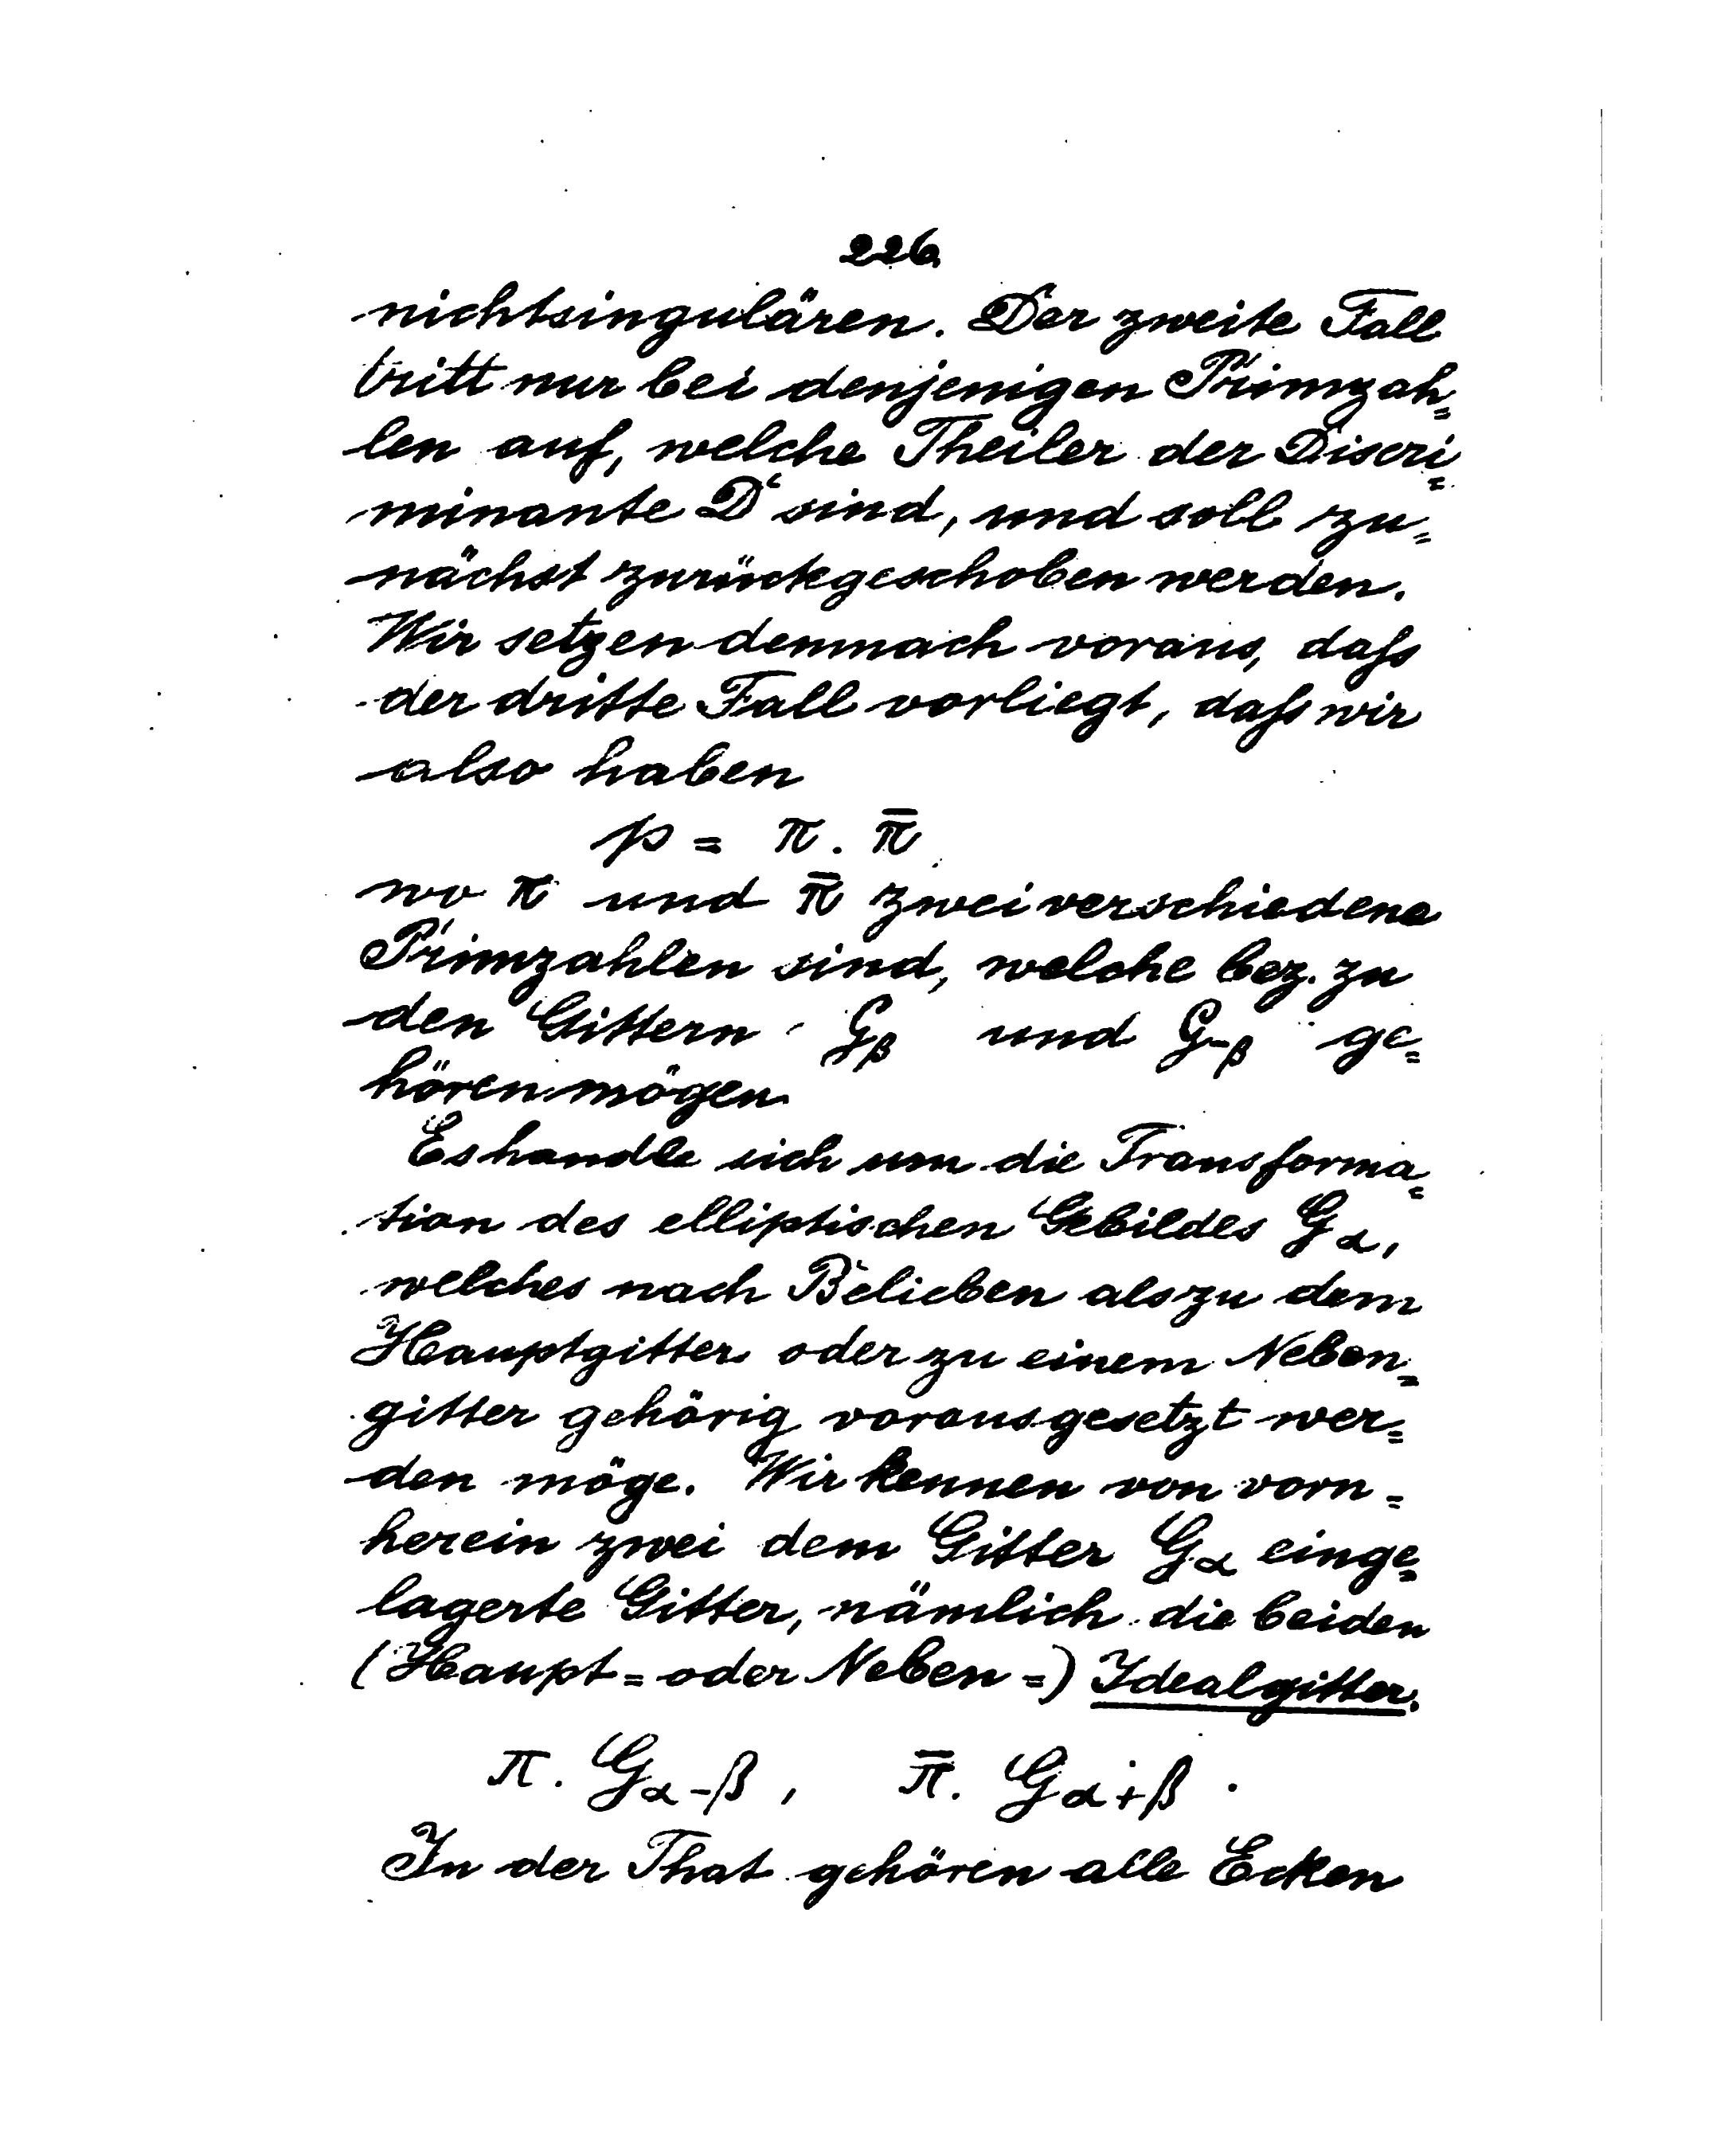 226.
nichtsingulären. Der zweite Fall
tritt nur bei denjenigen Primzah=
len auf, welche Theiler der Discri=
minante D' sind, und soll zu=
nächst zurückgeschoben werden.
Wir setzen demnach voraus, daſs
der dritte Fall vorliegt, daſs wir
also haben
p = π . π̄
wo π und π̄ zwei verschiedene
Primzahlen sind, welche bez. zu
den Gittern G_β und G_-β ge=
hören mögen.
Es handle sich um die Transforma=
tion des elliptischen Gebildes G_α,
welches nach Belieben als zu dem
Hauptgitter oder zu einem Neben=
gitter gehörig vorausgesetzt wer=
den möge. Wir kennen von vorn=
herein zwei dem Gitter G_α einge=
lagerte Gitter, nämlich die beiden
(Haupt= oder Neben=) Idealgitter.
π. G_α-β , π̄. G_α+β .
In der That gehören alle Ecken